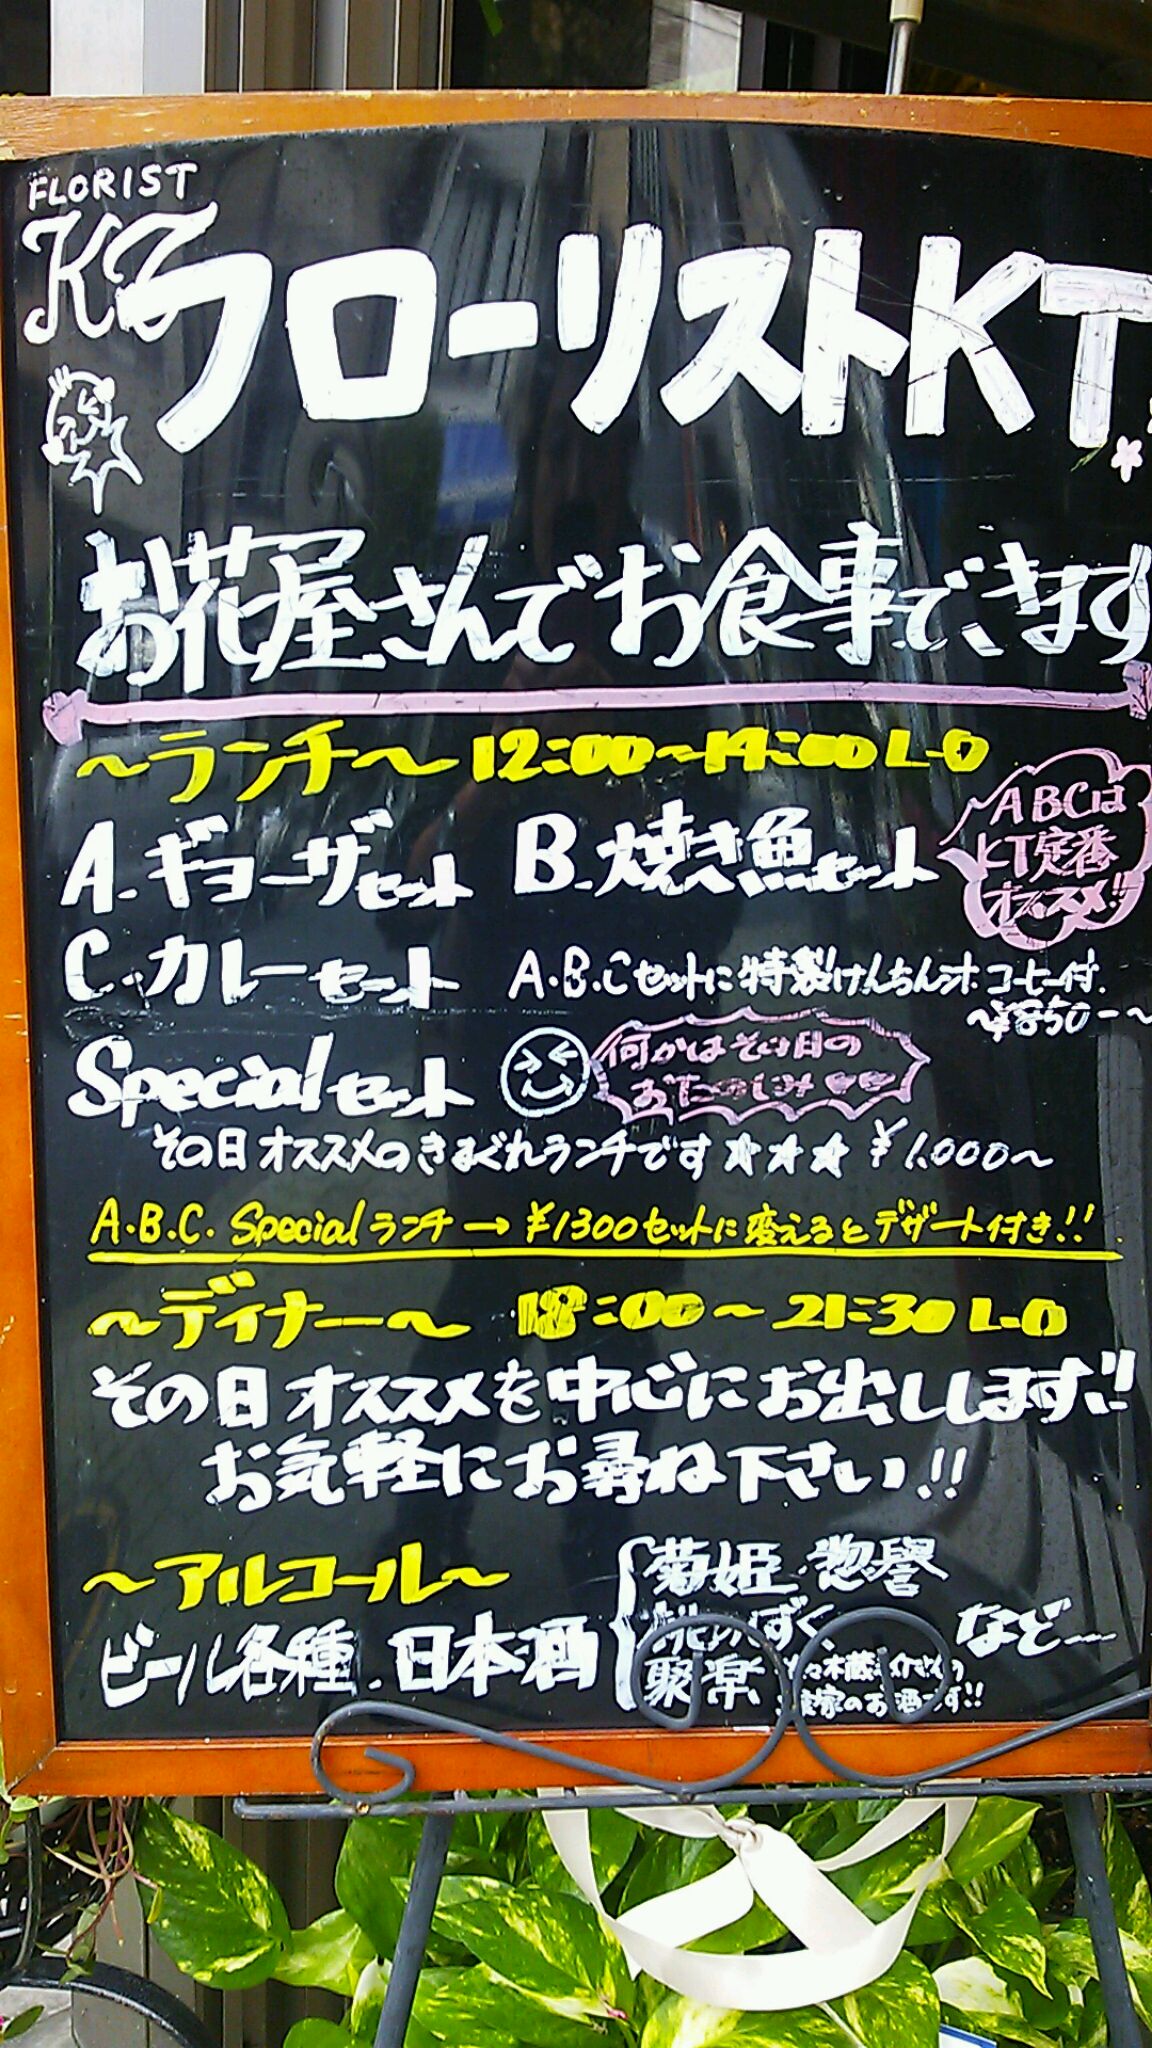 FLORIST
KT
フローリストKT
お花屋さんでお食事できます
～ランチ～ 12:00～14:00 L-O
A.ギョーザセット B.焼き魚セット
ABCは
KT定番
オススメ!!
C.カレーセット A.B.Cセットに特製けんちん汁.コーヒー付.
～¥850-～
Specialセット 何かはその日の
おたのしみ
その日オススメのきまぐれランチです☆☆☆ ¥1.000～
A.B.C. Specialランチ→¥1300セットに変えるとデザート付き!!
～ディナー～ 18:00～21:30 L-O
その日オススメを中心にお出しします!!
お気軽にお尋ね下さい!!
～アルコール～
ビール各種.日本酒
菊姫.惣誉
ずく、
聚楽
など